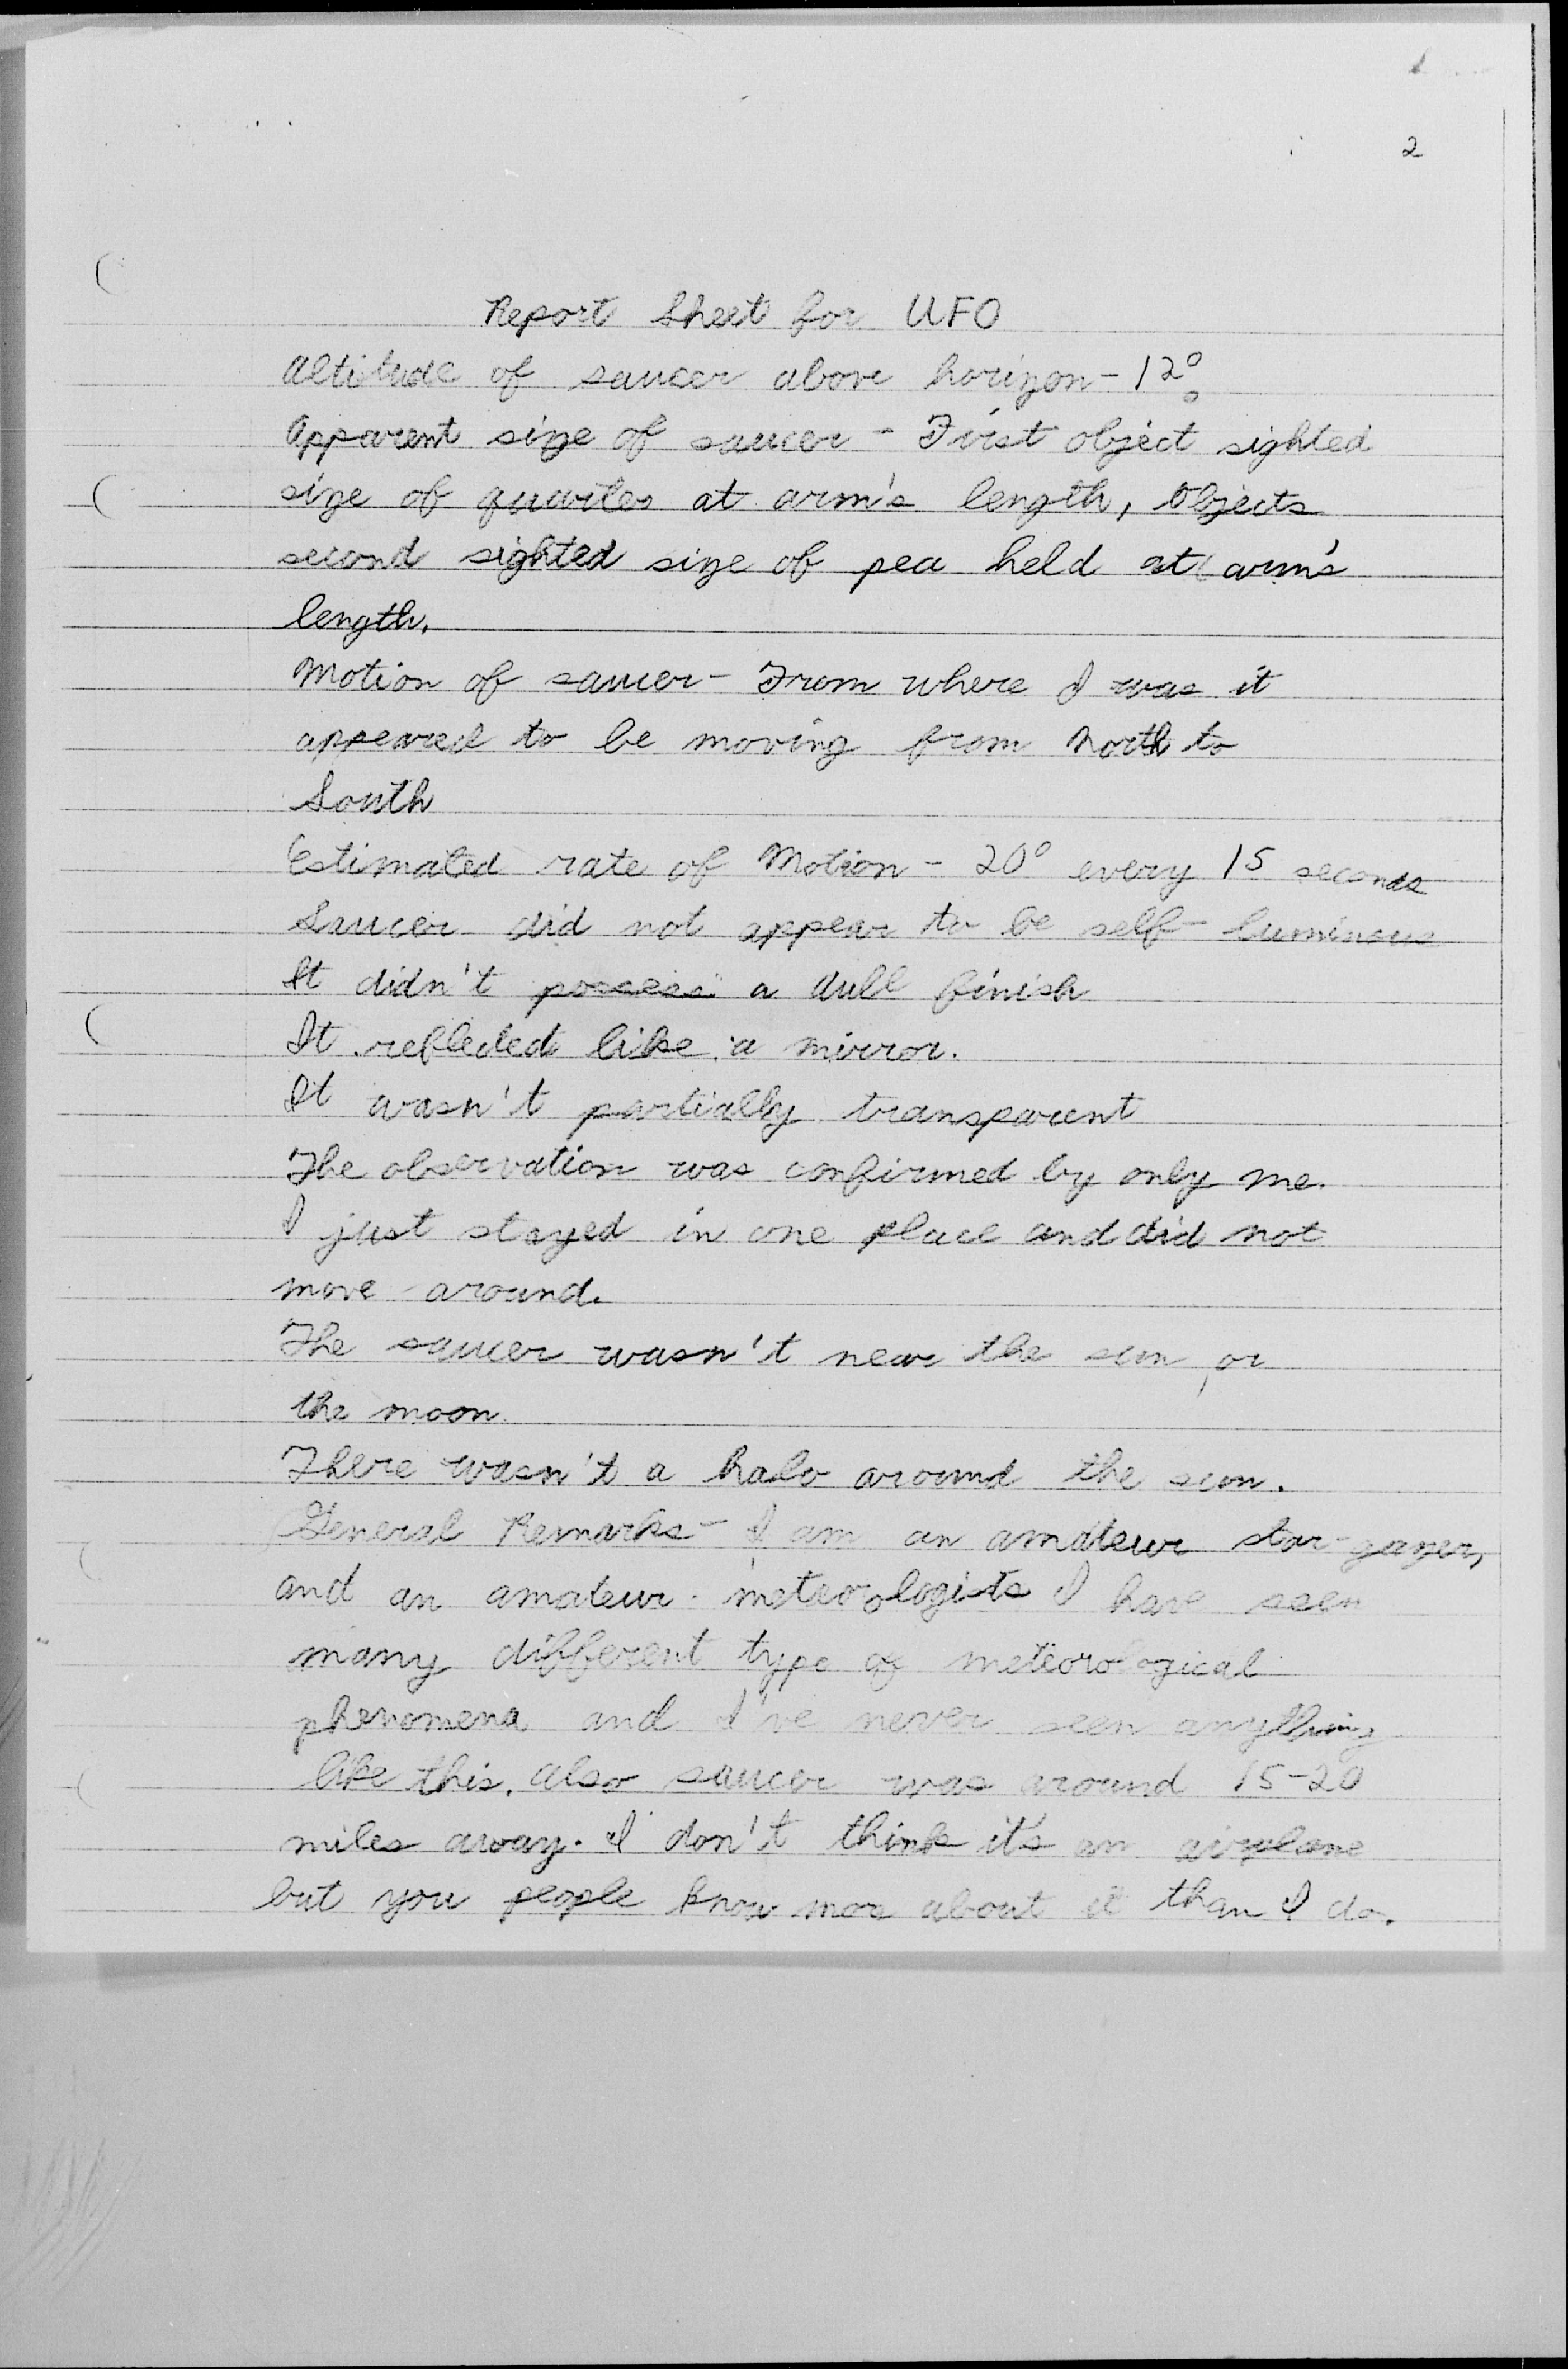 2
Report Sheet for UFO
Altitude of saucer above horizon - 12°
Apparent size of saucer - First object sighted
size of quarter at arm's length, Objects
second sighted size of pea held at arm's
length.
Motion of saucer - From where I was it
appeared to be moving from North to
South
Estimated rate of Motion - 20° every 15 seconds
Saucer did not appear to be self-luminous
It didn't possess a dull finish
It reflected like a mirror.
It wasn't partially transparent
The observation was confirmed by only me.
I just stayed in one place and did not
move around.
The saucer wasn't near the sun, or
the moon.
There wasn't a halo around the sun.
General Remarks - I am an amateur star-gazer,
and an amateur meteorologists I have seen
many different type of meteorological
phenomena and I've never seen anything
like this. Also saucer was around 15-20
miles away. I don't think it's an airplane
but you people know more about it than I do.